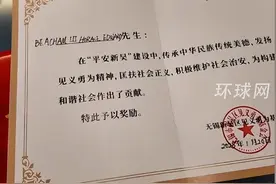 环球网
BEACHAM III HORACE EDWARD先生：
在“平安新吴”建设中，传承中华民族传统美德，发扬
见义勇为精神，匡扶社会正义，积极维护社会治安，为构建
和谐社会作出了贡献。
特此予以奖励。
无锡新吴区见义勇为基